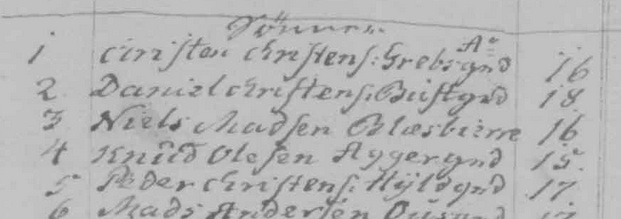 Sönner
Ao
1 Christen Christens: Grebsgrd 16
2 Daniel Christens: Bustgrd 18
3 Niels Madsen Blæsbierre 16
4 Knud Olesen Aggergrd 15.
5 Peder Christens: Hyldgrd 17.
6 Mads Andersen